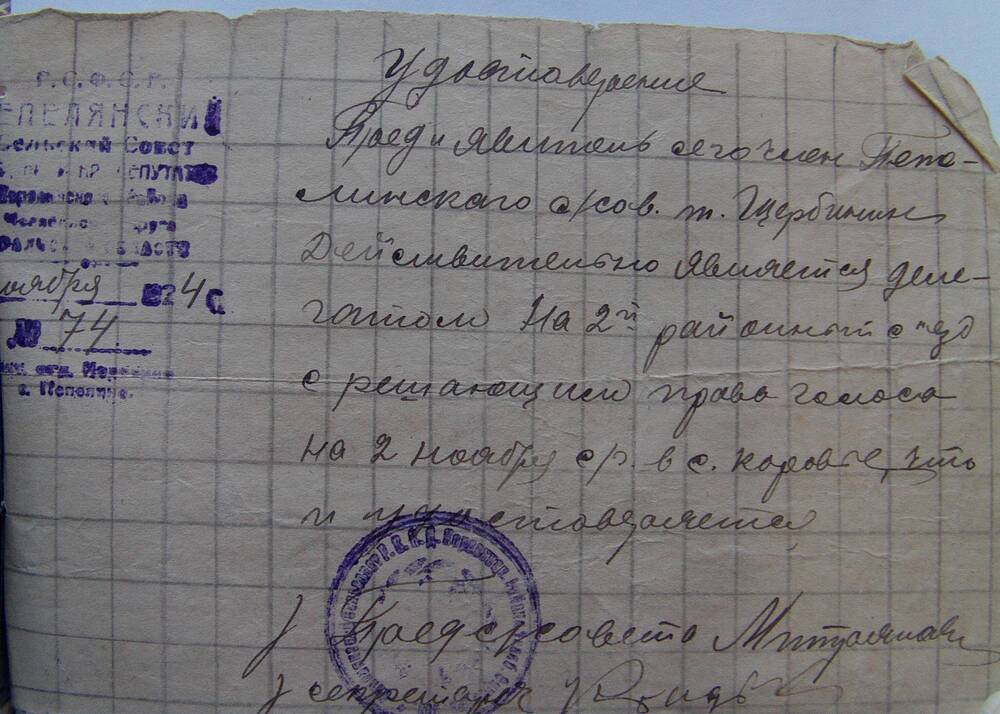 Р.С.Ф.С.Р.
ЕПЕЛЯНСКИЙ
Сельский Совет
ЕПУТАТОВ
округа
оября 1924 г.
№ 74
с. Пепелино.
Удостоверение
Предиявитель сего член Пепе-
линскаго с/сов. т. Щербинин
Действительно является деле-
гатом На 2й районный с"езд
с решающим права голоса
на 2 ноября с/г. в с. Коровье, что
и удостоверяется
Предсельсовета
секретарь